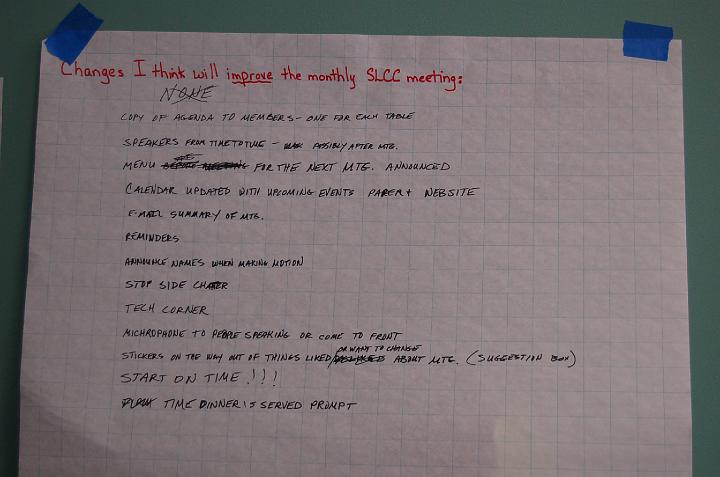 Changes I think will improve the monthly SLCC meeting:
NONE
COPY OF AGENDA TO MEMBERS - ONE FOR EACH TABLE
SPEAKERS FROM TIME TO TIME - POSSIBLY AFTER MTG.
MENU FOR THE NEXT MTG. ANNOUNCED
CALENDAR UPDATED WITH UPCOMING EVENTS PAPER + WEBSITE
E-MAIL SUMMARY OF MTG.
REMINDERS
ANNOUNCE NAMES WHEN MAKING MOTION
STOP SIDE CHATTER
TECH CORNER
MICHROPHONE TO PEOPLE SPEAKING OR COME TO FRONT
OR WANT TO CHANGE
STICKERS ON THE WAY OUT OF THINGS LIKED/ ABOUT MTG. (SUGGESTION BOX)
START ON TIME!!!
TIME DINNER IS SERVED PROMPT